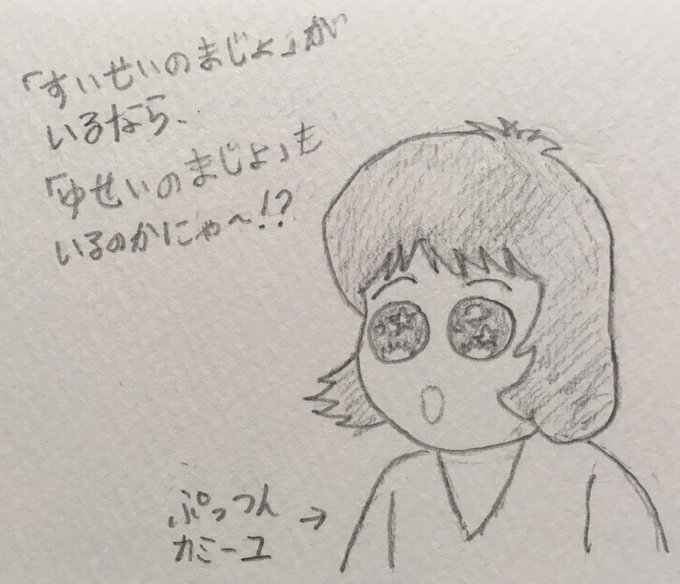 「すいせいのまじょ」が
いるなら、
「ゆせいのまじょ」も
いるのかにゃ～!?
ぷっつん
カミーユ